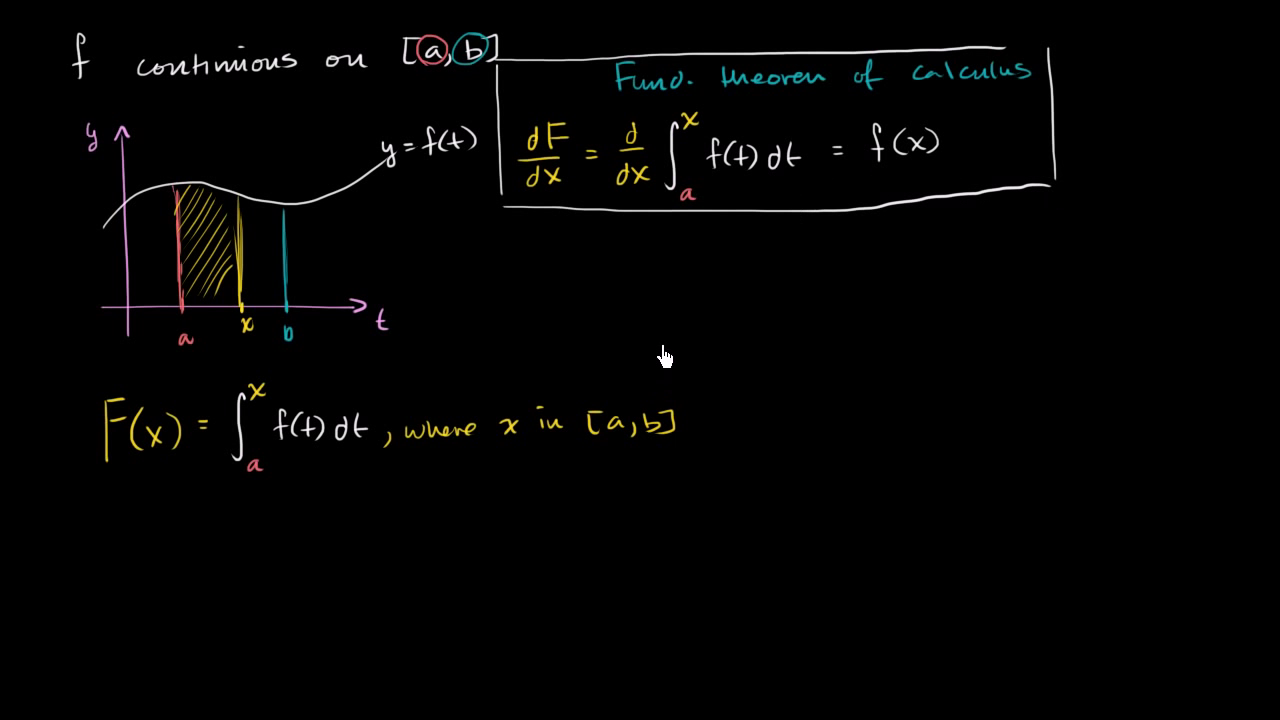 f continuous on [a, b]
Fund. theorem of calculus
dF/dx = d/dx ∫_a^x f(t) dt = f(x)
y
y = f(t)
a
x
b
t
F(x) = ∫_a^x f(t) dt , where x in [a, b]